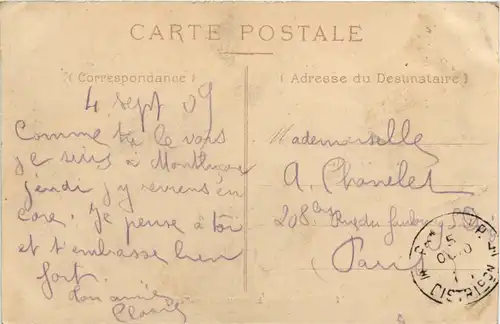 CARTE POSTALE
(Correspondance)
(Adresse du Destinataire)
4 Sept 09
Comme tu le vois
je suis à Montluçon
jeudi j'y reviens en
core. Je pense à toi
et t'embrasse bien
fort.
Ton amie
Mademoiselle
A. Chanelet
208 Rue du Faubourg
Paris
DISTRIBUTION